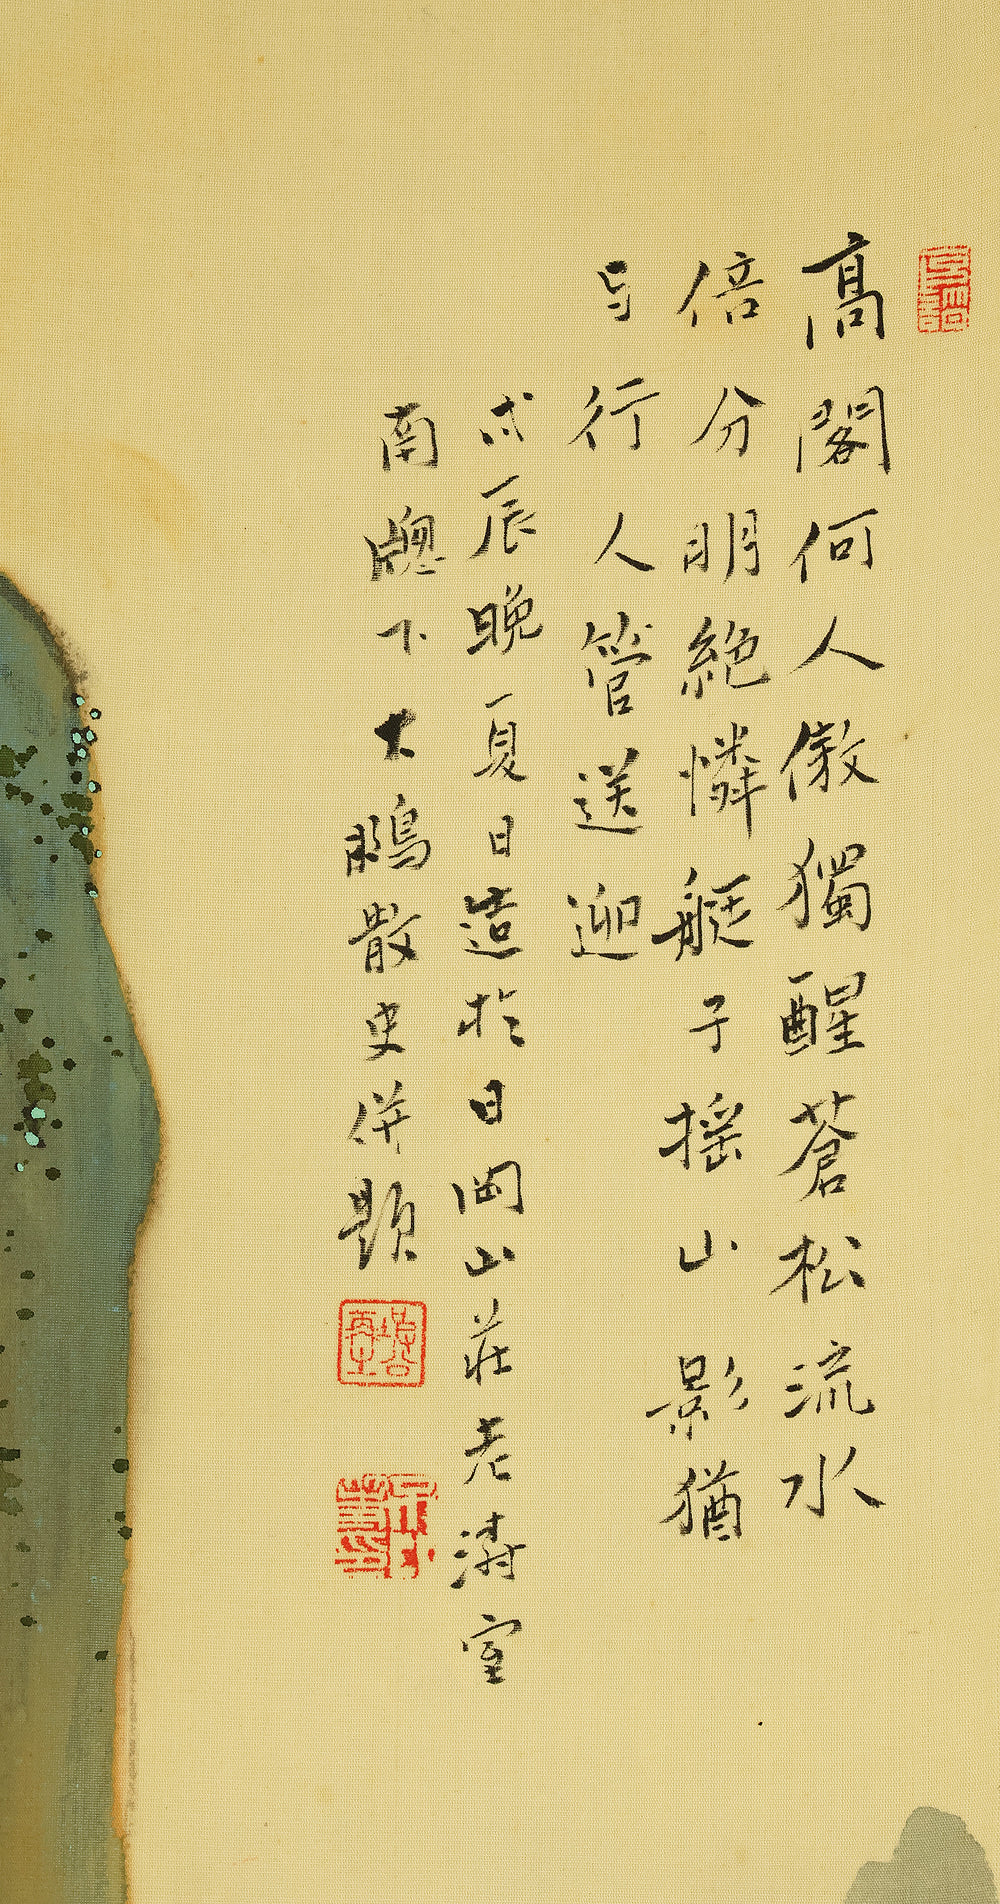 高閣何人傲獨醒蒼松流水
倍分明絶憐艇子摇山影猶
与行人管送迎
戊辰晩夏日造於日岡山荘老濤室
南牕下大鵬散史併題